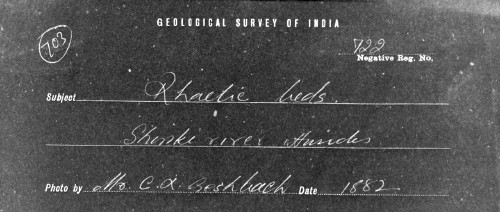 GEOLOGICAL SURVEY OF INDIA
703
722
Negative Reg. No.
Subject Rhaetic beds.
river
Photo by Mr. C. L. Date 1882